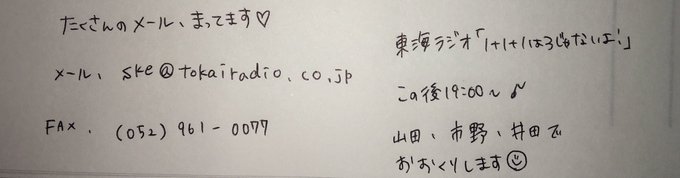 たくさんのメール、まってます♡
メール、 ske@tokairadio.co.jp
FAX. (052) 961-0077
東海ラジオ「1+1+1は3じゃないよ!」
この後19:00～♪
山田、市野、井田で
おおくりします☺